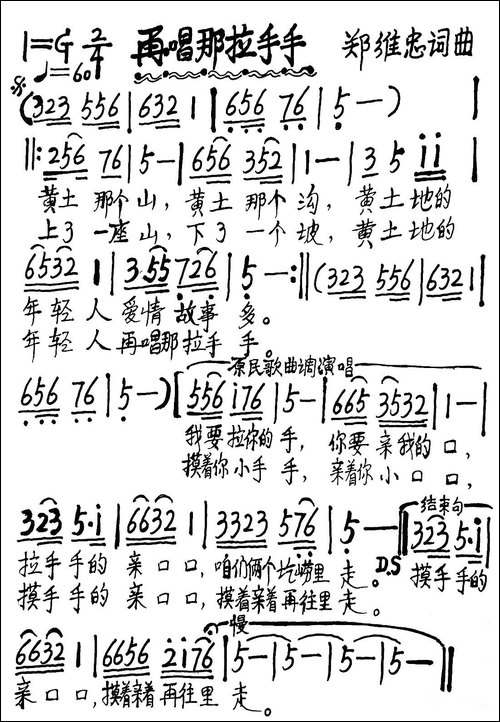 1=G 2/4 再唱那拉手手 郑维忠词曲
♩=60
(323 556 | 632 1 | 656 76 | 5 — ) |
‖: 256 76 | 5 — | 656 352 | 1 — | 3 5 i i |
黄土 那个 山, 黄土 那个 沟, 黄土地的
上了 一座 山, 下了 一个 坡, 黄土地的
6532 1 | 3·55 726 | 5 — :‖ (323 556 | 632 1 |
年轻人 爱情 故事 多。
年轻人 再唱那拉手 手。
原民歌曲调演唱
656 76 | 5 — ) [ 556 i76 | 5 — | 665 3532 | 1 — |
我要拉你的 手, 你要 亲我的 口,
摸着你小手 手, 亲着你 小口 口,
结束句
323 5·i | 6632 1 | 3323 576 | 5 — ‖ 323 5·i |
拉手手的 亲口口, 咱们俩个圪崂里 走。 D.S 摸手手的
摸手手的 亲口口, 摸着亲着再往里 走。
慢
6632 1 | 6656 2i76 | 5 — | 5 — | 5 — | 5 — ‖
亲口口, 摸着亲着 再往里 走。